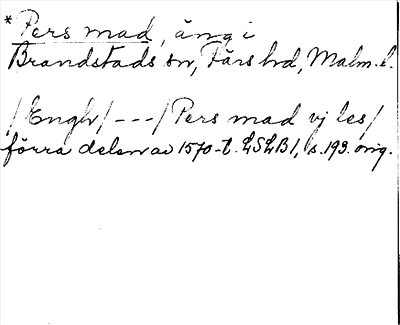 * Pers mad, äng i
Brandstads sn, Färs hd, Malm. l.
/Engh/ - - - / Pers mad vj les/
förra delen av 1570-t. LSLB 1, s. 193. orig.